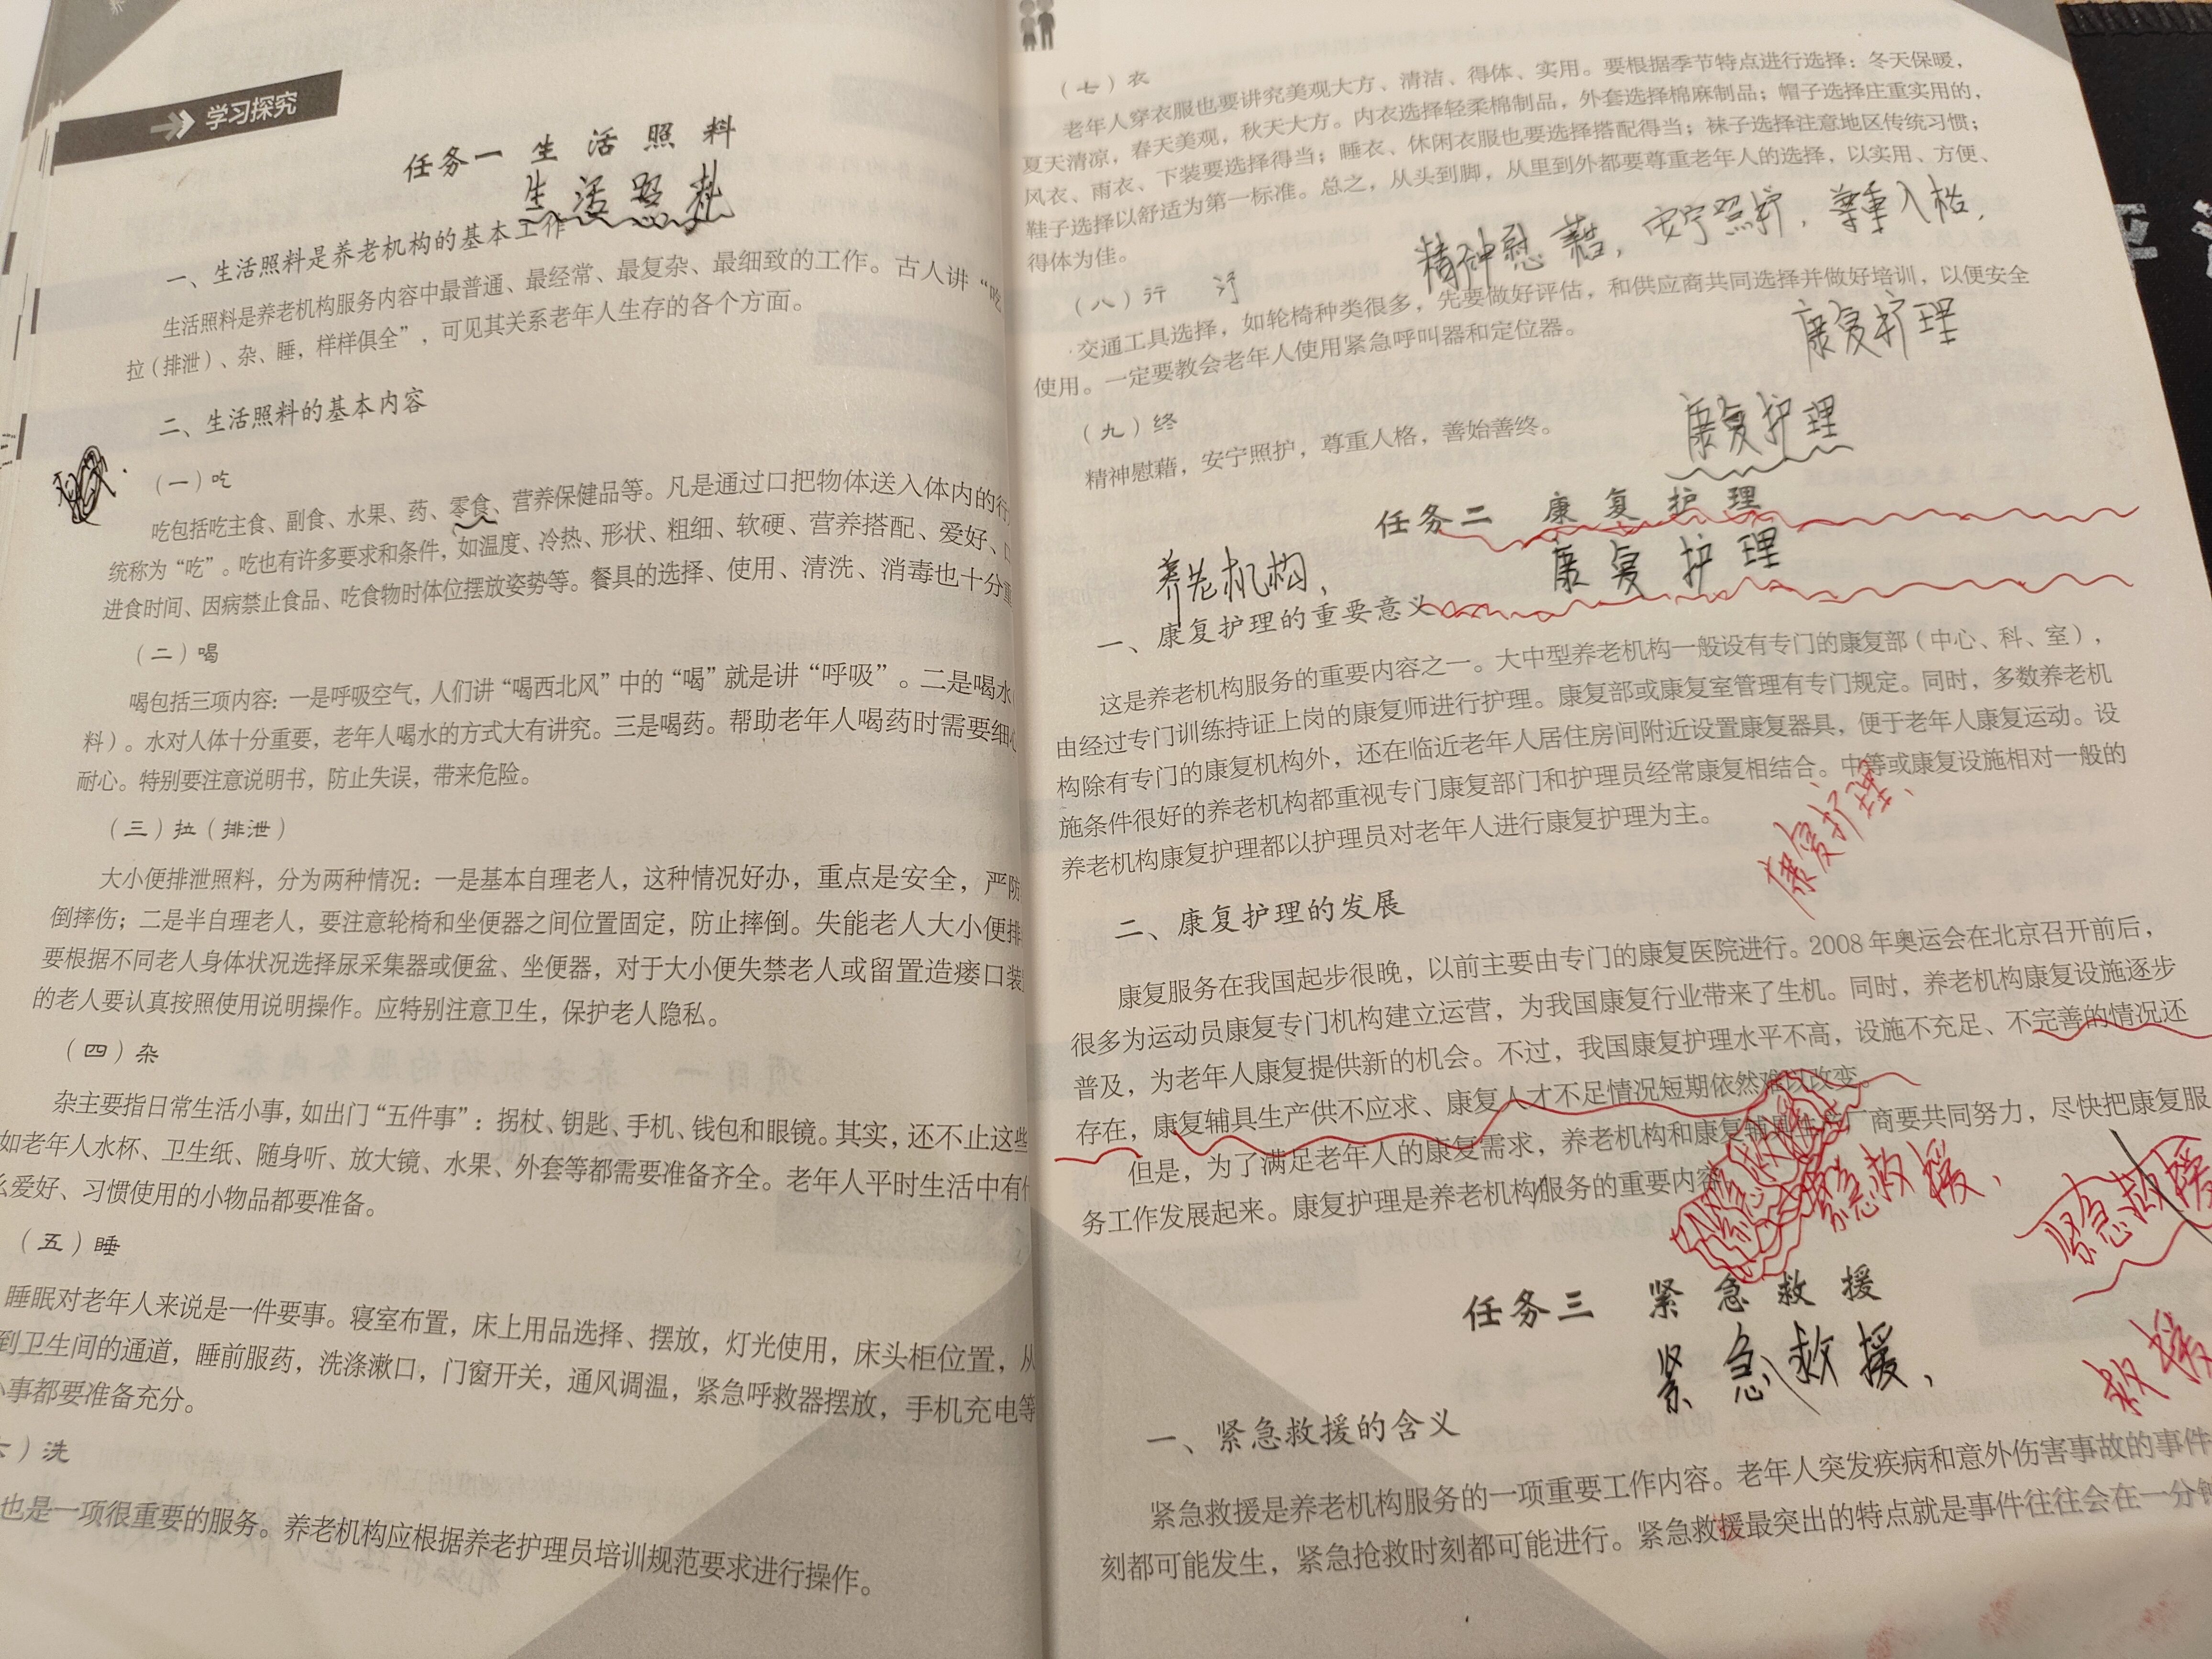 学习探究
任务一 生活照料
生活照料
一、生活照料是养老机构的基本工作
生活照料是养老机构服务内容中最普通、最经常、最复杂、最细致的工作。古人讲“吃
拉（排泄）、杂、睡，样样俱全”，可见其关系老年人生存的各个方面。
二、生活照料的基本内容
（一）吃
吃包括吃主食、副食、水果、药、零食、营养保健品等。凡是通过口把物体送入体内的行
统称为“吃”。吃也有许多要求和条件，如温度、冷热、形状、粗细、软硬、营养搭配、爱好、
进食时间、因病禁止食品、吃食物时体位摆放姿势等。餐具的选择、使用、清洗、消毒也十分重
（二）喝
喝包括三项内容：一是呼吸空气，人们讲“喝西北风”中的“喝”就是讲“呼吸”。二是喝水
料）。水对人体十分重要，老年人喝水的方式大有讲究。三是喝药。帮助老年人喝药时需要细心
耐心。特别要注意说明书，防止失误，带来危险。
（三）拉（排泄）
大小便排泄照料，分为两种情况：一是基本自理老人，这种情况好办，重点是安全，严防
倒摔伤；二是半自理老人，要注意轮椅和坐便器之间位置固定，防止摔倒。失能老人大小便排
要根据不同老人身体状况选择尿采集器或便盆、坐便器，对于大小便失禁老人或留置造瘘口装
的老人要认真按照使用说明操作。应特别注意卫生，保护老人隐私。
（四）杂
杂主要指日常生活小事，如出门“五件事”：拐杖、钥匙、手机、钱包和眼镜。其实，还不止这些
如老年人水杯、卫生纸、随身听、放大镜、水果、外套等都需要准备齐全。老年人平时生活中有什
么爱好、习惯使用的小物品都要准备。
（五）睡
睡眠对老年人来说是一件要事。寝室布置，床上用品选择、摆放，灯光使用，床头柜位置，从
到卫生间的通道，睡前服药，洗涤漱口，门窗开关，通风调温，紧急呼救器摆放，手机充电等
小事都要准备充分。
六）洗
也是一项很重要的服务。养老机构应根据养老护理员培训规范要求进行操作。
（七）衣
老年人穿衣服也要讲究美观大方、清洁、得体、实用。要根据季节特点进行选择：冬天保暖，
夏天清凉，春天美观，秋天大方。内衣选择轻柔棉制品，外套选择棉麻制品；帽子选择庄重实用的，
风衣、雨衣、下装要选择得当；睡衣、休闲衣服也要选择搭配得当；袜子选择注意地区传统习惯；
鞋子选择以舒适为第一标准。总之，从头到脚，从里到外都要尊重老年人的选择，以实用、方便、
得体为佳。
精神慰藉，安宁照护，尊重人格，
（八）行
交通工具选择，如轮椅种类很多，先要做好评估，和供应商共同选择并做好培训，以便安全
使用。一定要教会老年人使用紧急呼叫器和定位器。
康复护理
（九）终
精神慰藉，安宁照护，尊重人格，善始善终。
康复护理
任务二 康复护理
康复护理
养老机构，
一、康复护理的重要意义
这是养老机构服务的重要内容之一。大中型养老机构一般设有专门的康复部（中心、科、室），
由经过专门训练持证上岗的康复师进行护理。康复部或康复室管理有专门规定。同时，多数养老机
构除有专门的康复机构外，还在临近老年人居住房间附近设置康复器具，便于老年人康复运动。设
施条件很好的养老机构都重视专门康复部门和护理员经常康复相结合。中等或康复设施相对一般的
养老机构康复护理都以护理员对老年人进行康复护理为主。
康复护理、
二、康复护理的发展
康复服务在我国起步很晚，以前主要由专门的康复医院进行。2008年奥运会在北京召开前后，
很多为运动员康复专门机构建立运营，为我国康复行业带来了生机。同时，养老机构康复设施逐步
普及，为老年人康复提供新的机会。不过，我国康复护理水平不高，设施不充足、不完善的情况还
存在，康复辅具生产供不应求、康复人才不足情况短期依然难以改变。
但是，为了满足老年人的康复需求，养老机构和康复辅具生产厂商要共同努力，尽快把康复服
务工作发展起来。康复护理是养老机构服务的重要内容
紧急救援、
紧急救援
任务三 紧急救援
紧急救援，
救援
一、紧急救援的含义
紧急救援是养老机构服务的一项重要工作内容。老年人突发疾病和意外伤害事故的事件
刻都可能发生，紧急抢救时刻都可能进行。紧急救援最突出的特点就是事件往往会在一分钟